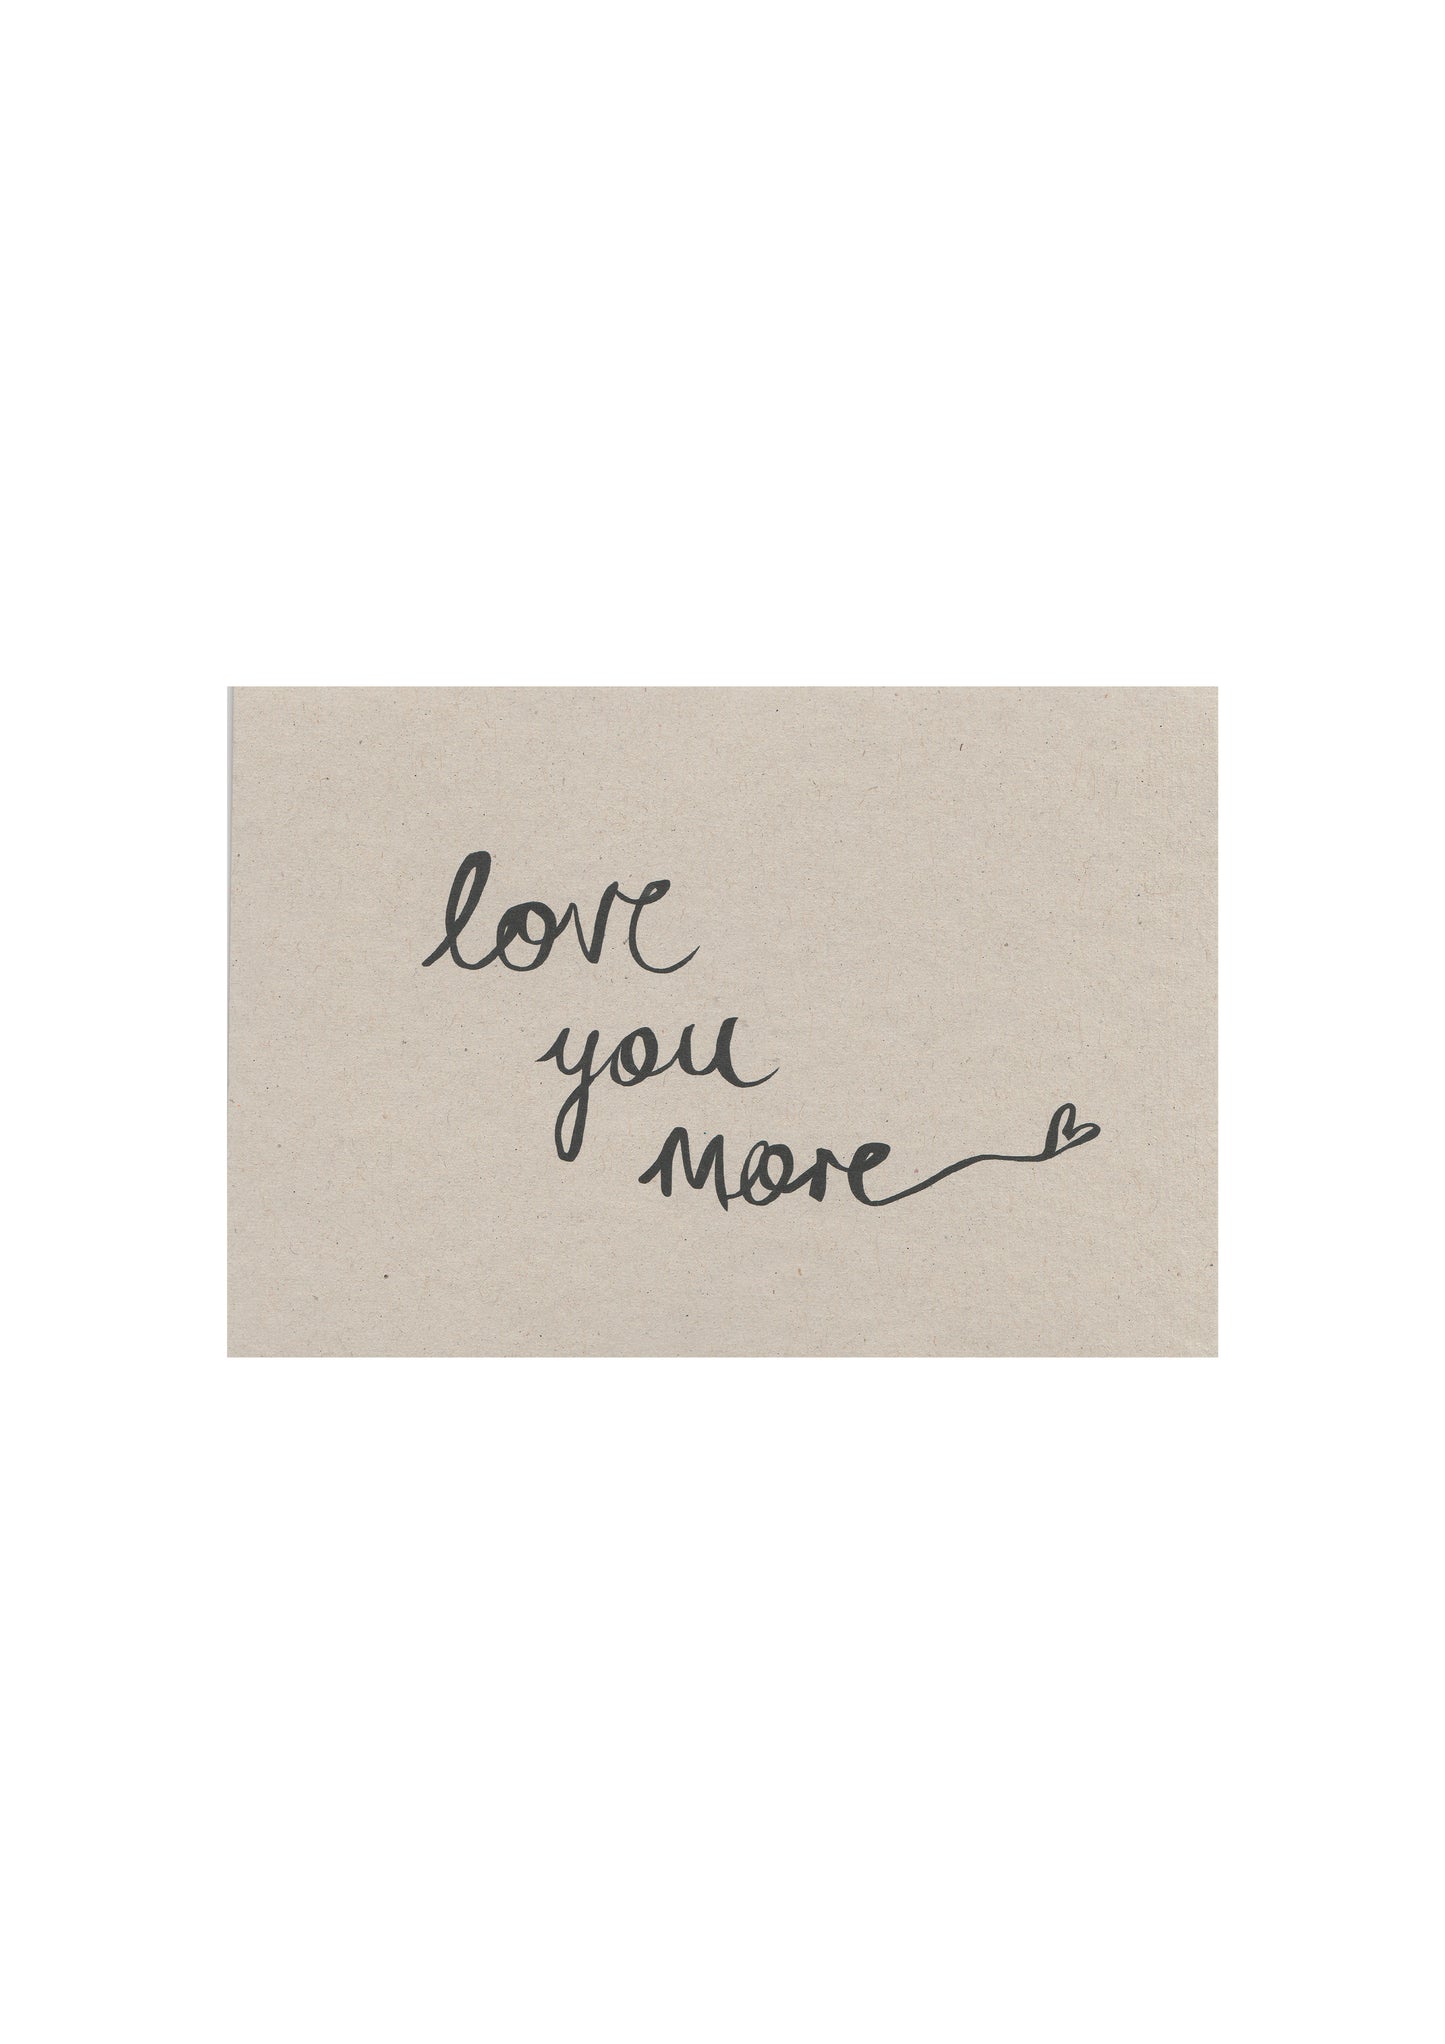 love
you
more